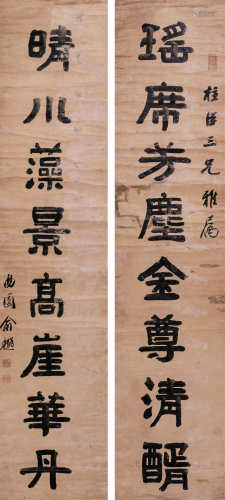 瑶席芳塵金尊清醑
桂臣三兄雅属
晴川藻景髙崖華丹
曲園俞樾